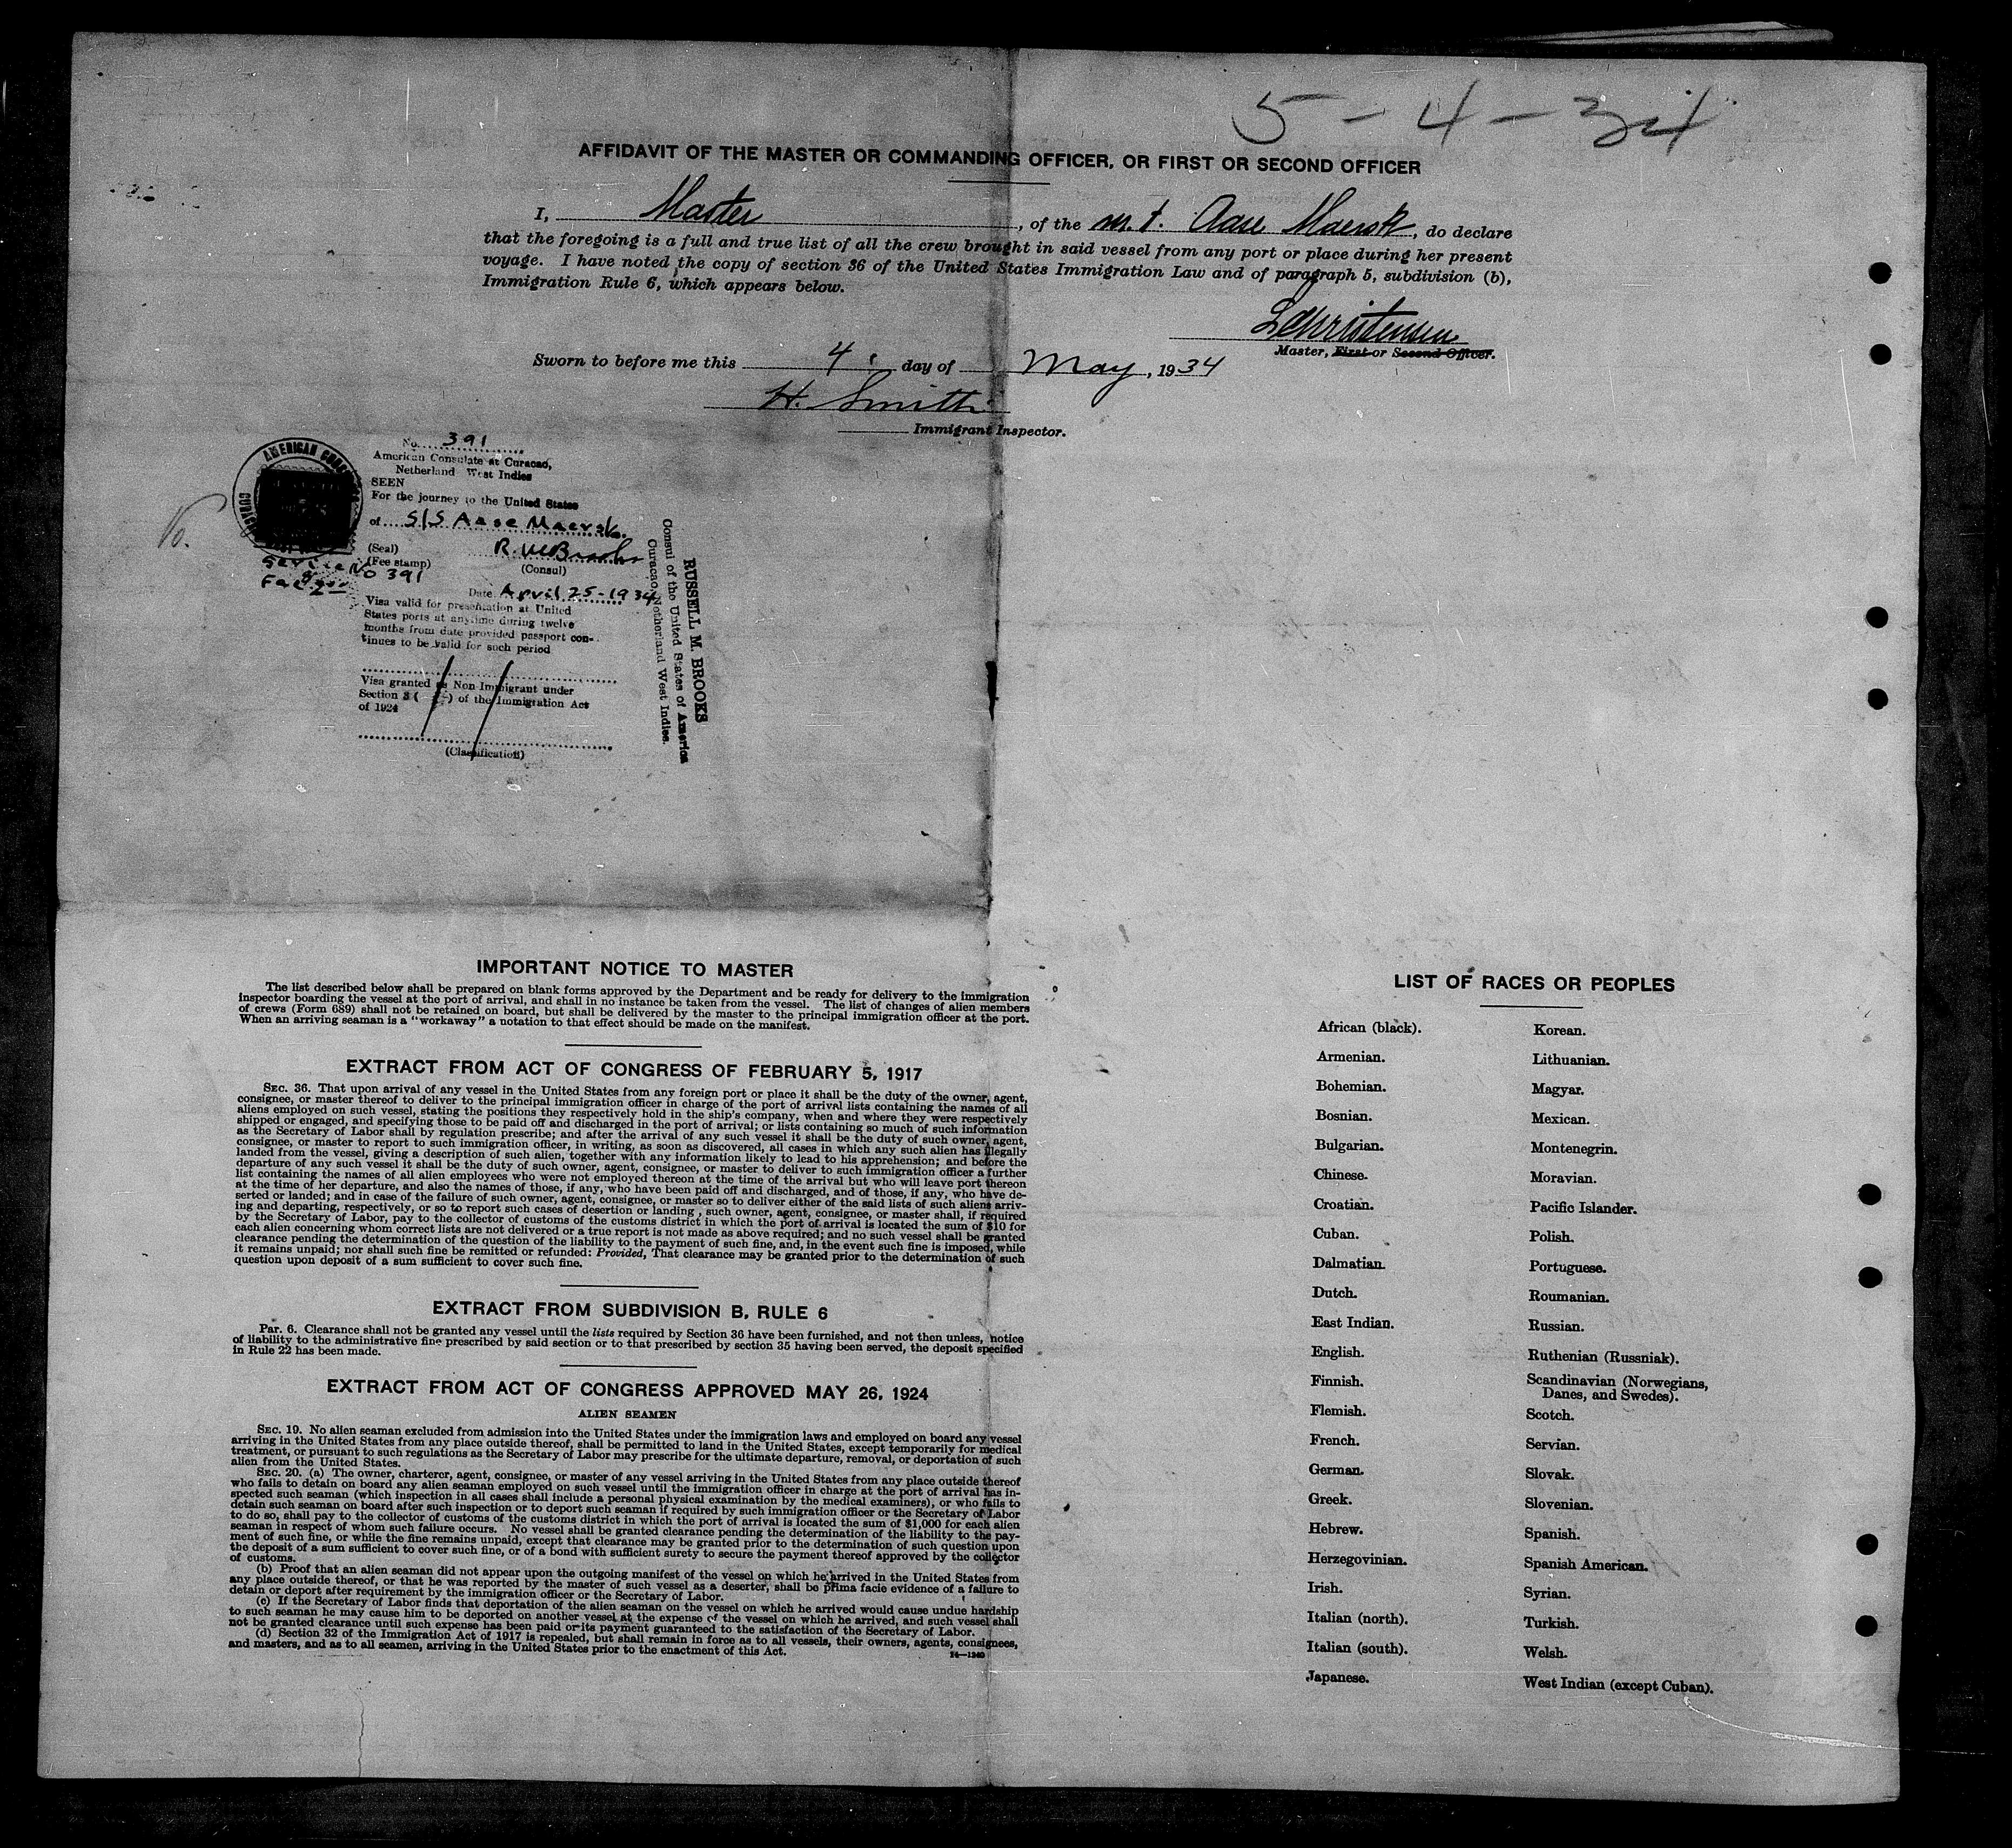 5-4-34
AFFIDAVIT OF THE MASTER OR COMMANDING OFFICER, OR FIRST OR SECOND OFFICER
I, Master, of the m.t. Aase Maersk, do declare
that the foregoing is a full and true list of all the crew brought in said vessel from any port or place during her present
voyage. I have noted the copy of section 36 of the United States Immigration Law and of paragraph 5, subdivision (b),
Immigration Rule 6, which appears below.
L Christensen
Master, First or Second Officer.
Sworn to before me this 4 day of May, 1934
H. Smith
Immigrant Inspector.
AMERICAN
CURACAO
No. 391
American Consulate at Curacao,
Netherland West Indies
SEEN
For the journey to the United States
of S/S Aase Maersk.
(Seal)
R. M Brooks
(Fee stamp)
(Consul)
Service No 391
Date April 25-1934
Visa valid for presentation at United
States ports at anytime during twelve
months from date provided passport con-
tinues to be valid for such period
Visa granted as Non Immigrant under
Section 3 ( ) of the Immigration Act
of 1924
(Classification)
RUSSELL M. BROOKS
Consul of the United States of America
Curacao, Netherland West Indies.
IMPORTANT NOTICE TO MASTER
The list described below shall be prepared on blank forms approved by the Department and be ready for delivery to the immigration
inspector boarding the vessel at the port of arrival, and shall in no instance be taken from the vessel. The list of changes of alien members
of crews (Form 689) shall not be retained on board, but shall be delivered by the master to the principal immigration officer at the port.
When an arriving seaman is a "workaway" a notation to that effect should be made on the manifest.
EXTRACT FROM ACT OF CONGRESS OF FEBRUARY 5, 1917
SEC. 36. That upon arrival of any vessel in the United States from any foreign port or place it shall be the duty of the owner, agent,
consignee, or master thereof to deliver to the principal immigration officer in charge of the port of arrival lists containing the names of all
aliens employed on such vessel, stating the positions they respectively hold in the ship's company, when and where they were respectively
shipped or engaged, and specifying those to be paid off and discharged in the port of arrival; or lists containing so much of such information
as the Secretary of Labor shall by regulation prescribe; and after the arrival of any such vessel it shall be the duty of such owner, agent,
consignee, or master to report to such immigration officer, in writing, as soon as discovered, all cases in which any such alien has illegally
landed from the vessel, giving a description of such alien, together with any information likely to lead to his apprehension; and before the
departure of any such vessel it shall be the duty of such owner, agent, consignee, or master to deliver to such immigration officer a further
list containing the names of all alien employees who were not employed thereon at the time of the arrival but who will leave port thereon
at the time of her departure, and also the names of those, if any, who have been paid off and discharged, and of those, if any, who have de-
serted or landed; and in case of the failure of such owner, agent, consignee, or master so to deliver either of the said lists of such aliens arriv-
ing and departing, respectively, or so to report such cases of desertion or landing , such owner, agent, consignee, or master shall, if required
by the Secretary of Labor, pay to the collector of customs of the customs district in which the port of arrival is located the sum of $10 for
each alien concerning whom correct lists are not delivered or a true report is not made as above required; and no such vessel shall be granted
clearance pending the determination of the question of the liability to the payment of such fine, and, in the event such fine is imposed, while
it remains unpaid; nor shall such fine be remitted or refunded: Provided, That clearance may be granted prior to the determination of such
question upon deposit of a sum sufficient to cover such fine.
EXTRACT FROM SUBDIVISION B, RULE 6
Par. 6. Clearance shall not be granted any vessel until the lists required by Section 36 have been furnished, and not then unless, notice
of liability to the administrative fine prescribed by said section or to that prescribed by section 35 having been served, the deposit specified
in Rule 22 has been made.
EXTRACT FROM ACT OF CONGRESS APPROVED MAY 26, 1924
ALIEN SEAMEN
SEC. 19. No alien seaman excluded from admission into the United States under the immigration laws and employed on board any vessel
arriving in the United States from any place outside thereof, shall be permitted to land in the United States, except temporarily for medical
treatment, or pursuant to such regulations as the Secretary of Labor may prescribe for the ultimate departure, removal, or deportation of such
alien from the United States.
SEC. 20. (a) The owner, charterer, agent, consignee, or master of any vessel arriving in the United States from any place outside thereof
who fails to detain on board any alien seaman employed on such vessel until the immigration officer in charge at the port of arrival has in-
spected such seaman (which inspection in all cases shall include a personal physical examination by the medical examiners), or who fails to
detain such seaman on board after such inspection or to deport such seaman if required by such immigration officer or the Secretary of Labor
to do so, shall pay to the collector of customs of the customs district in which the port of arrival is located the sum of $1,000 for each alien
seaman in respect of whom such failure occurs. No vessel shall be granted clearance pending the determination of the liability to the pay-
ment of such fine, or while the fine remains unpaid, except that clearance may be granted prior to the determination of such question upon
the deposit of a sum sufficient to cover such fine, or of a bond with sufficient surety to secure the payment thereof approved by the collector
of customs.
(b) Proof that an alien seaman did not appear upon the outgoing manifest of the vessel on which he arrived in the United States from
any place outside thereof, or that he was reported by the master of such vessel as a deserter, shall be prima facie evidence of a failure to
detain or deport after requirement by the immigration officer or the Secretary of Labor.
(c) If the Secretary of Labor finds that deportation of the alien seaman on the vessel on which he arrived would cause undue hardship
to such seaman he may cause him to be deported on another vessel at the expense of the vessel on which he arrived, and such vessel shall
not be granted clearance until such expense has been paid or its payment guaranteed to the satisfaction of the Secretary of Labor.
(d) Section 32 of the Immigration Act of 1917 is repealed, but shall remain in force as to all vessels, their owners, agents, consignees,
and masters, and as to all seamen, arriving in the United States prior to the enactment of this Act.
14—1240
LIST OF RACES OR PEOPLES
African (black).
Armenian.
Bohemian.
Bosnian.
Bulgarian.
Chinese.
Croatian.
Cuban.
Dalmatian.
Dutch.
East Indian.
English.
Finnish.
Flemish.
French.
German.
Greek.
Hebrew.
Herzegovinian.
Irish.
Italian (north).
Italian (south).
Japanese.
Korean.
Lithuanian.
Magyar.
Mexican.
Montenegrin.
Moravian.
Pacific Islander.
Polish.
Portuguese.
Roumanian.
Russian.
Ruthenian (Russniak).
Scandinavian (Norwegians,
Danes, and Swedes).
Scotch.
Servian.
Slovak.
Slovenian.
Spanish.
Spanish American.
Syrian.
Turkish.
Welsh.
West Indian (except Cuban).